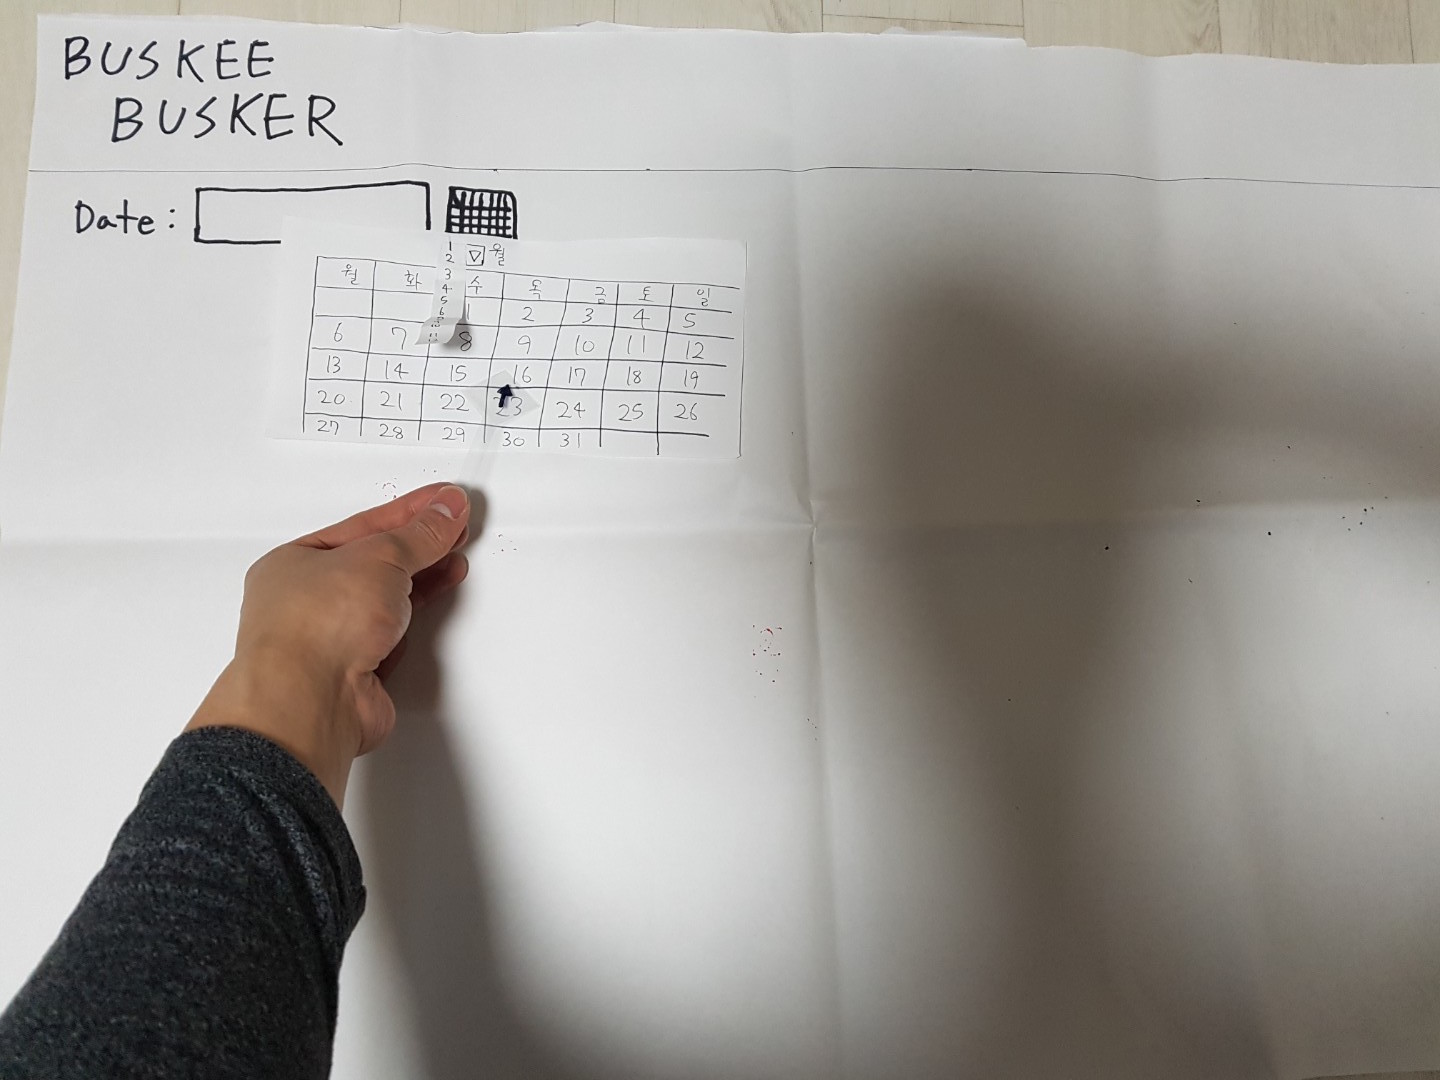 BUSKEE
BUSKER
Date :
1 월
2
3
4
5
6
월 화 수 목 금 토 일
1 2 3 4 5
6 7 8 9 10 11 12
13 14 15 16 17 18 19
20 21 22 23 24 25 26
27 28 29 30 31